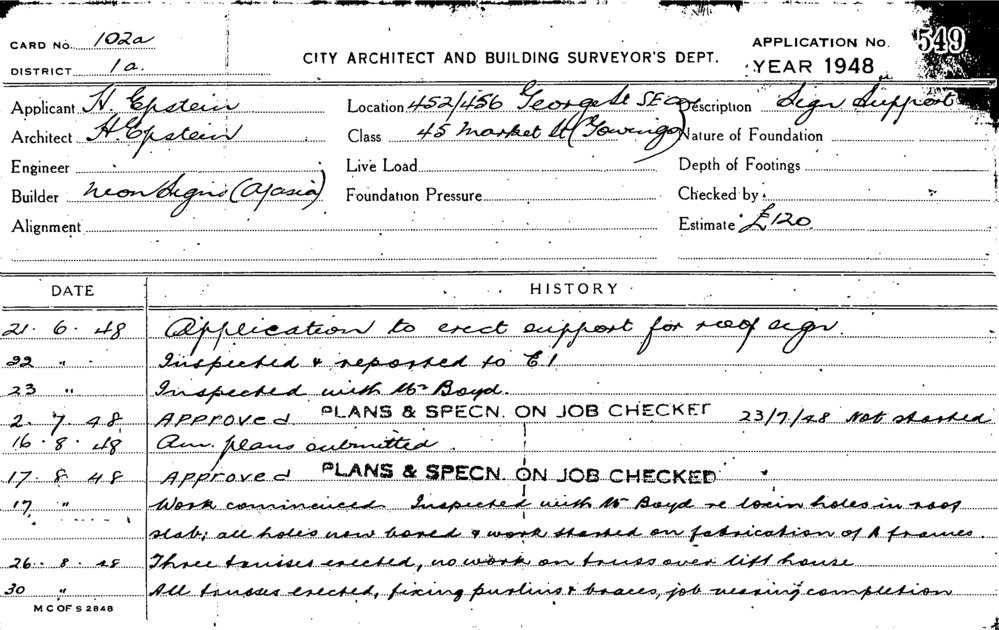 CARD No. 102a
DISTRICT 1a.
CITY ARCHITECT AND BUILDING SURVEYOR'S DEPT.
APPLICATION No. 549
YEAR 1948
Applicant H. Epstein
Location 452/456 George St SE Cr
Description Sign Support
Architect H. Epstein
Class 45 Market St (Gowings)
Nature of Foundation
Engineer
Live Load
Depth of Footings
Builder Neon Signs (A/asia)
Foundation Pressure
Checked by
Alignment
Estimate £120.
DATE HISTORY
21. 6. 48 Application to erect support for roof sign.
22 " Inspected & reported to C.I
23 " Inspected with Mr Boyd.
2. 7. 48 APPROVED PLANS & SPECN. ON JOB CHECKED 23/7/48 Not started
16. 8. 48 Am. plans submitted.
17. 8. 48 APPROVED PLANS & SPECN. ON JOB CHECKED
17 " Work commenced. Inspected with Mr Boyd re holes in roof
slab; all holes now bored & work started on fabrication of A frames.
26. 8. 48 Three trusses erected, no work on truss over lift house
30 " All trusses erected, fixing purlins & braces, job nearing completion
M C OF S 2848